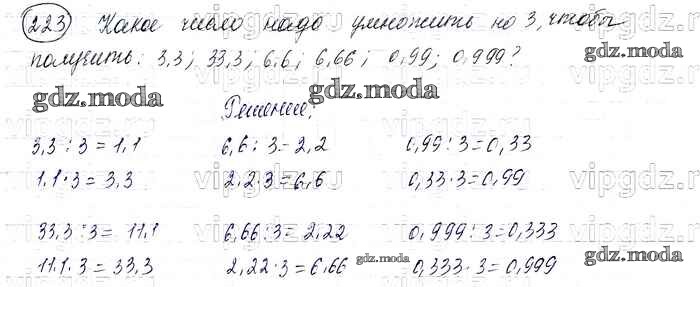 223 Какое число надо умножить на 3, чтобы
получить: 3,3; 33,3; 6,6; 6,66; 0,99; 0,999?
gdz.moda gdz.moda gdz.moda
Решение:
3,3 : 3 = 1,1 6,6 : 3 = 2,2 0,99 : 3 = 0,33
1,1 · 3 = 3,3 2,2 · 3 = 6,6 0,33 · 3 = 0,99
33,3 : 3 = 11,1 6,66 : 3 = 2,22 0,999 : 3 = 0,333
11,1 · 3 = 33,3 2,22 · 3 = 6,66 0,333 · 3 = 0,999
gdz.moda gdz.moda